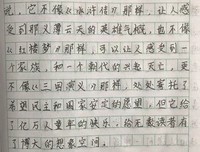 说，它不像《水浒传》那样，让人感
受到那义薄云天的英雄气概，也不像
《红楼梦》那样，可以让人感受到一
个家族，和一个朝代的兴起灭亡，更
不像《三国演义》那样，处处寄托了
希望民主和国家安定的愿望，但它给
了亿万人童年的快乐，给无数读者有
了博大的想象空间。